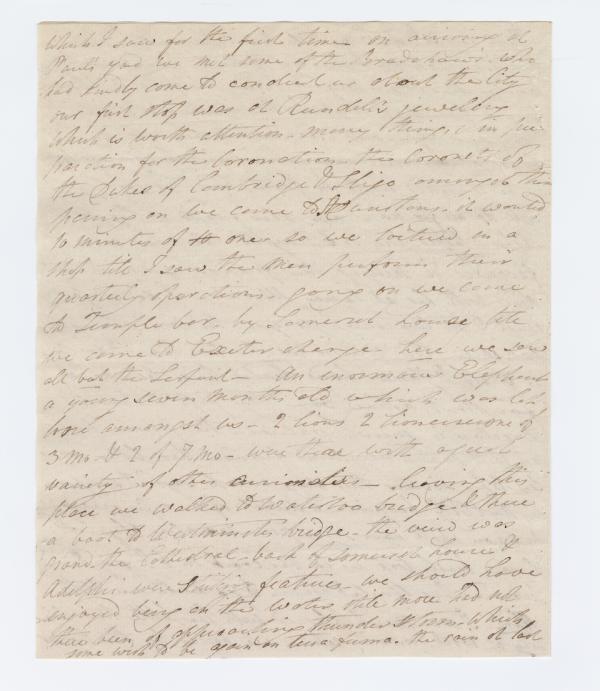 which I saw for the first time on arriving at
Pauls yard we met some of the Bradshaws who
had kindly come to conduct us about the City
our first stop was at Rundells jewellery
which is worth attention. many things in pre
paration for the Coronation. the Coronets of
the Dukes of Cambridge & Sligo amongst them
passing on we came to St Dunstons. it wanted
10 minutes of one. so we loitered in a
shop till I saw the men perform their
quarterly operations. going on we came
to Temple bar. by Somerset house till
we came to Exeter change. here we saw
all but the Serpent - An enormous Elephant
a young seven months old which was let
loose amongst us - 2 lions 2 lionesses one of
3 mo. & 2 of 7 mo - were there with a great
variety of other curiosities - leaving this
place we walked to Waterloo bridge & there
a boat to Westminster bridge - the view was
grand the Cathedral - back of Somerset house &
Adelphi were features - we should have
enjoyed being on the water still more had not
there been of approaching thunder storm. which
some wish to be again on terra firma. the rain at last